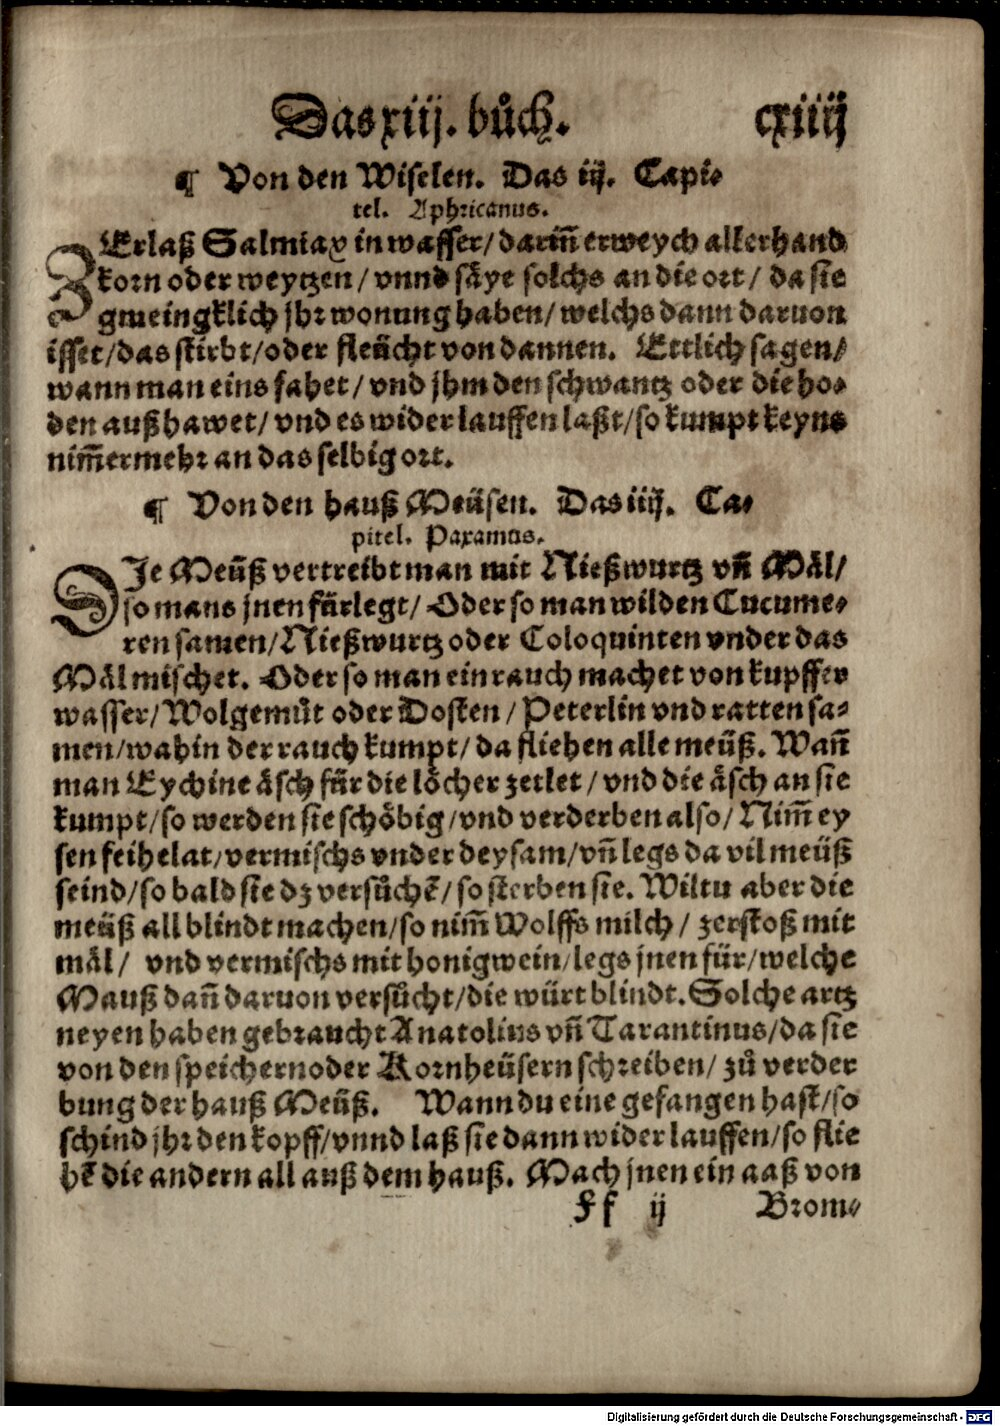 Das xiij. bůch. cxiiij
¶ Von den Wiselen. Das iij. Capi⸗
tel. Aphricanus.
ZErlaß Salmiax in wasser/ darin̄ erweych allerhand
korn oder weytzen/ vnnd säye solchs an die ort/ da sie
gmeingklich jhr wonung haben/ welchs dann daruon
isset/ das stirbt/ oder fleücht von dannen. Ettlich sagen/
wann man eins fahet/ vnd jhm den schwantz oder die ho⸗
den außhawet/ vnd es wider lauffen laßt/ so kumpt keyns
nim̄ermehr an das selbig ort.
¶ Von den hauß Meüsen. Das iiij. Ca⸗
pitel. Paxamus.
DIe Meüß vertreibt man mit Nießwurtz vn̄ Mäl/
so mans jnen fürlegt/ Oder so man wilden Cucume⸗
ren samen/ Nießwurtz oder Coloquinten vnder das
Mäl mischet. Oder so man ein rauch machet von kupffer
wasser/ Wolgemůt oder Dosten/ Peterlin vnd ratten sa⸗
men/ wahin der rauch kumpt/ da fliehen alle meüß. Wan̄
man Eychine äsch für die löcher zetlet/ vnd die äsch an sie
kumpt/ so werden sie schöbig/ vnd verderben also/ Nim̄ ey
sen feihelat/ vermischs vnder deysam/ vn̄ legs da vil meüß
seind/ so bald sie dz versůchē/ so sterben sie. Wiltu aber die
meüß all blindt machen/ so nim̄ Wolffs milch/ zerstoß mit
mäl/ vnd vermischs mit honigwein/ legs jnen für/ welche
Mauß dan̄ daruon versůcht/ die würt blindt. Solche artz
neyen haben gebraucht Anatolius vn̄ Tarantinus/ da sie
von den speichern oder Kornheüsern schreiben/ zů verder
bung der hauß Meüß. Wann du eine gefangen hast/ so
schind jhr den kopff/ vnnd laß sie dann wider lauffen/ so flie
hē die andern all auß dem hauß. Mach jnen ein aaß von
Ff ij Brom⸗
Digitalisierung gefördert durch die Deutsche Forschungsgemeinschaft - DFG